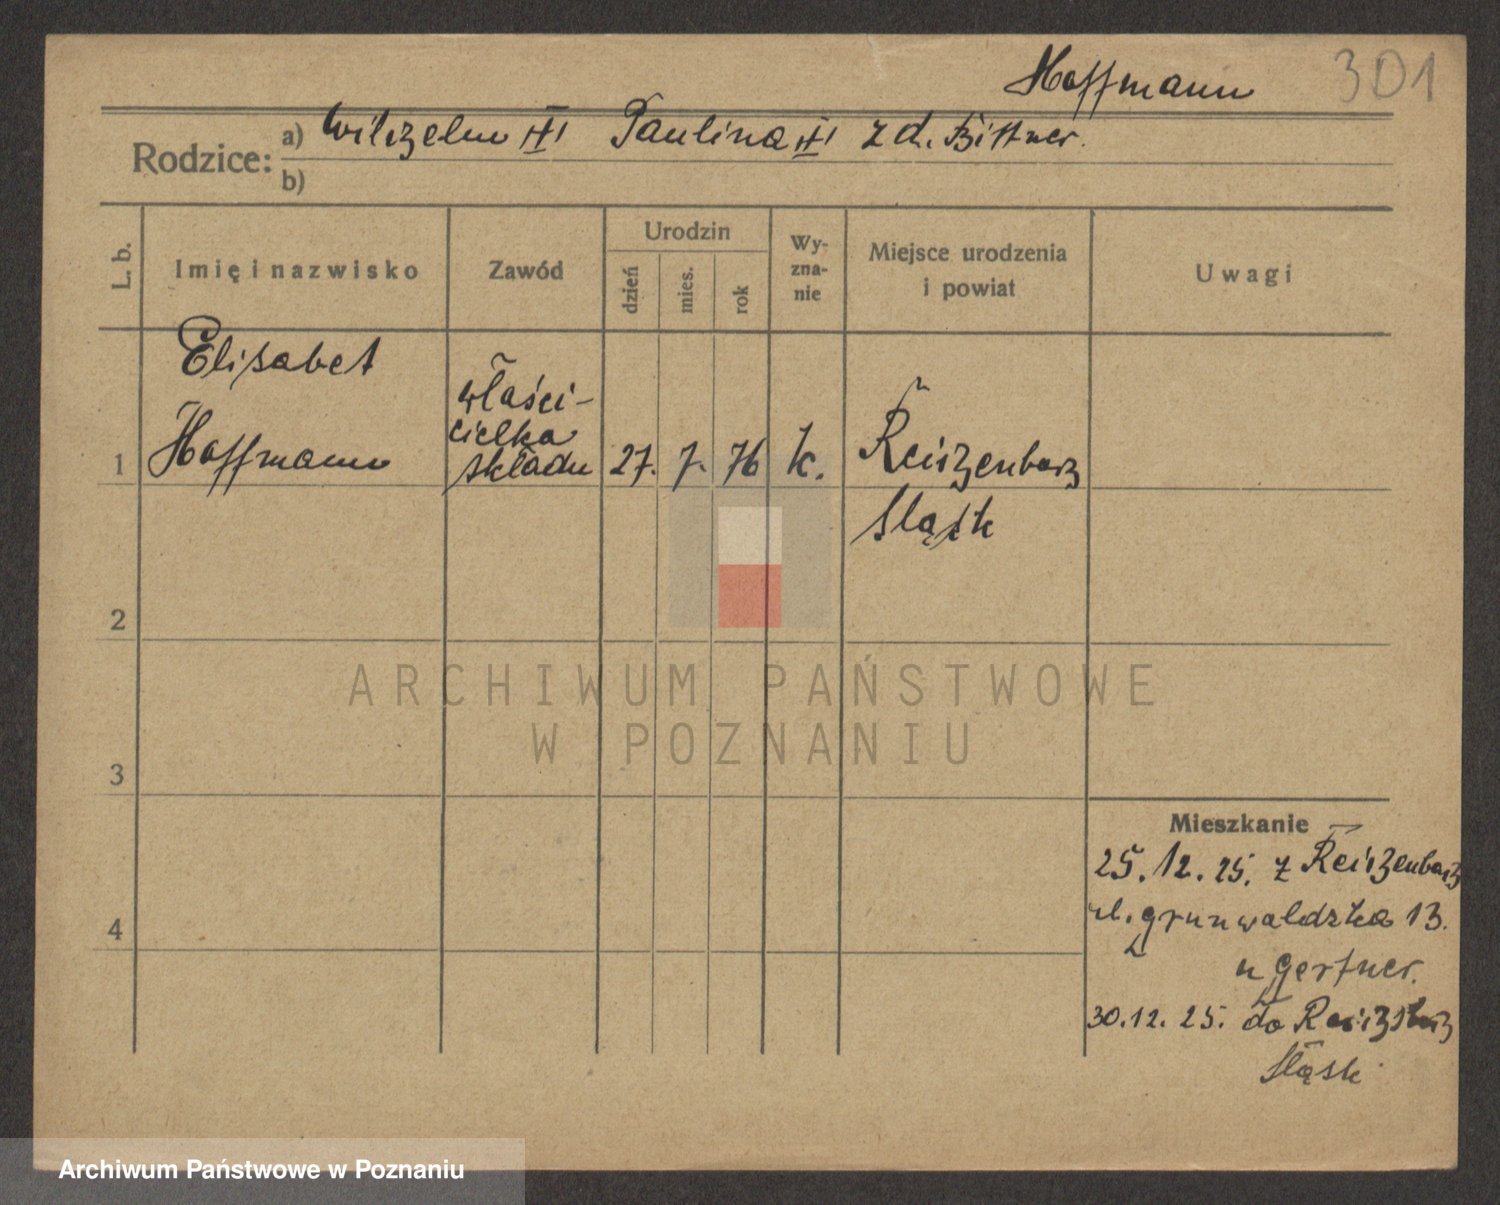 Hoffmann 301
Rodzice: a) Wilhelm Paulina z d. Bittner.
b)
L. b. Imię i nazwisko Zawód Urodzin Wy-zna-nie Miejsce urodzenia i powiat Uwagi
dzień mies. rok
Elisabet
właści-
cielka
1 Hoffmann składu 27. 7. 76 k.
Śląsk
2
ARCHIWUM PAŃSTWOWE
W POZNANIU
3
Mieszkanie
25. 12. 25. z
ul. grunwaldzka 13.
4
u Gertner.
30. 12. 25. do
Śląsk
Archiwum Państwowe w Poznaniu